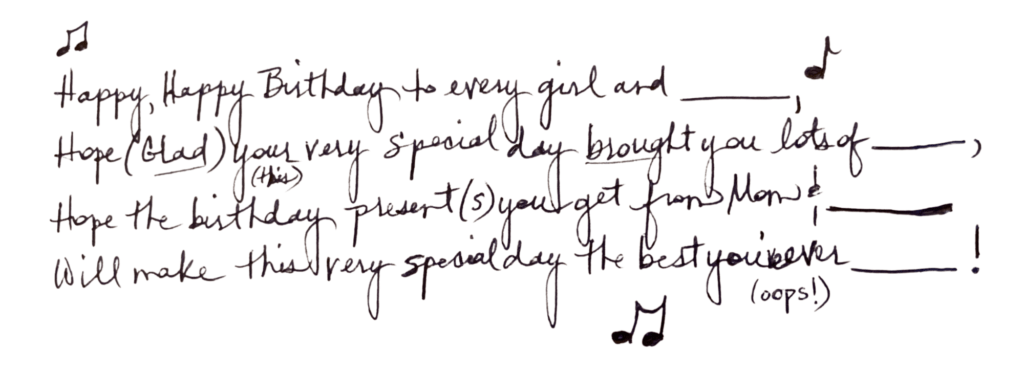 Happy, Happy Birthday to every girl and ______,
Hope (Glad) your very special day brought you lots of ______,
(this)
Hope the birthday present(s) you get from Mom & ______
Will make this very special day the best you've ever ______!
(oops!)